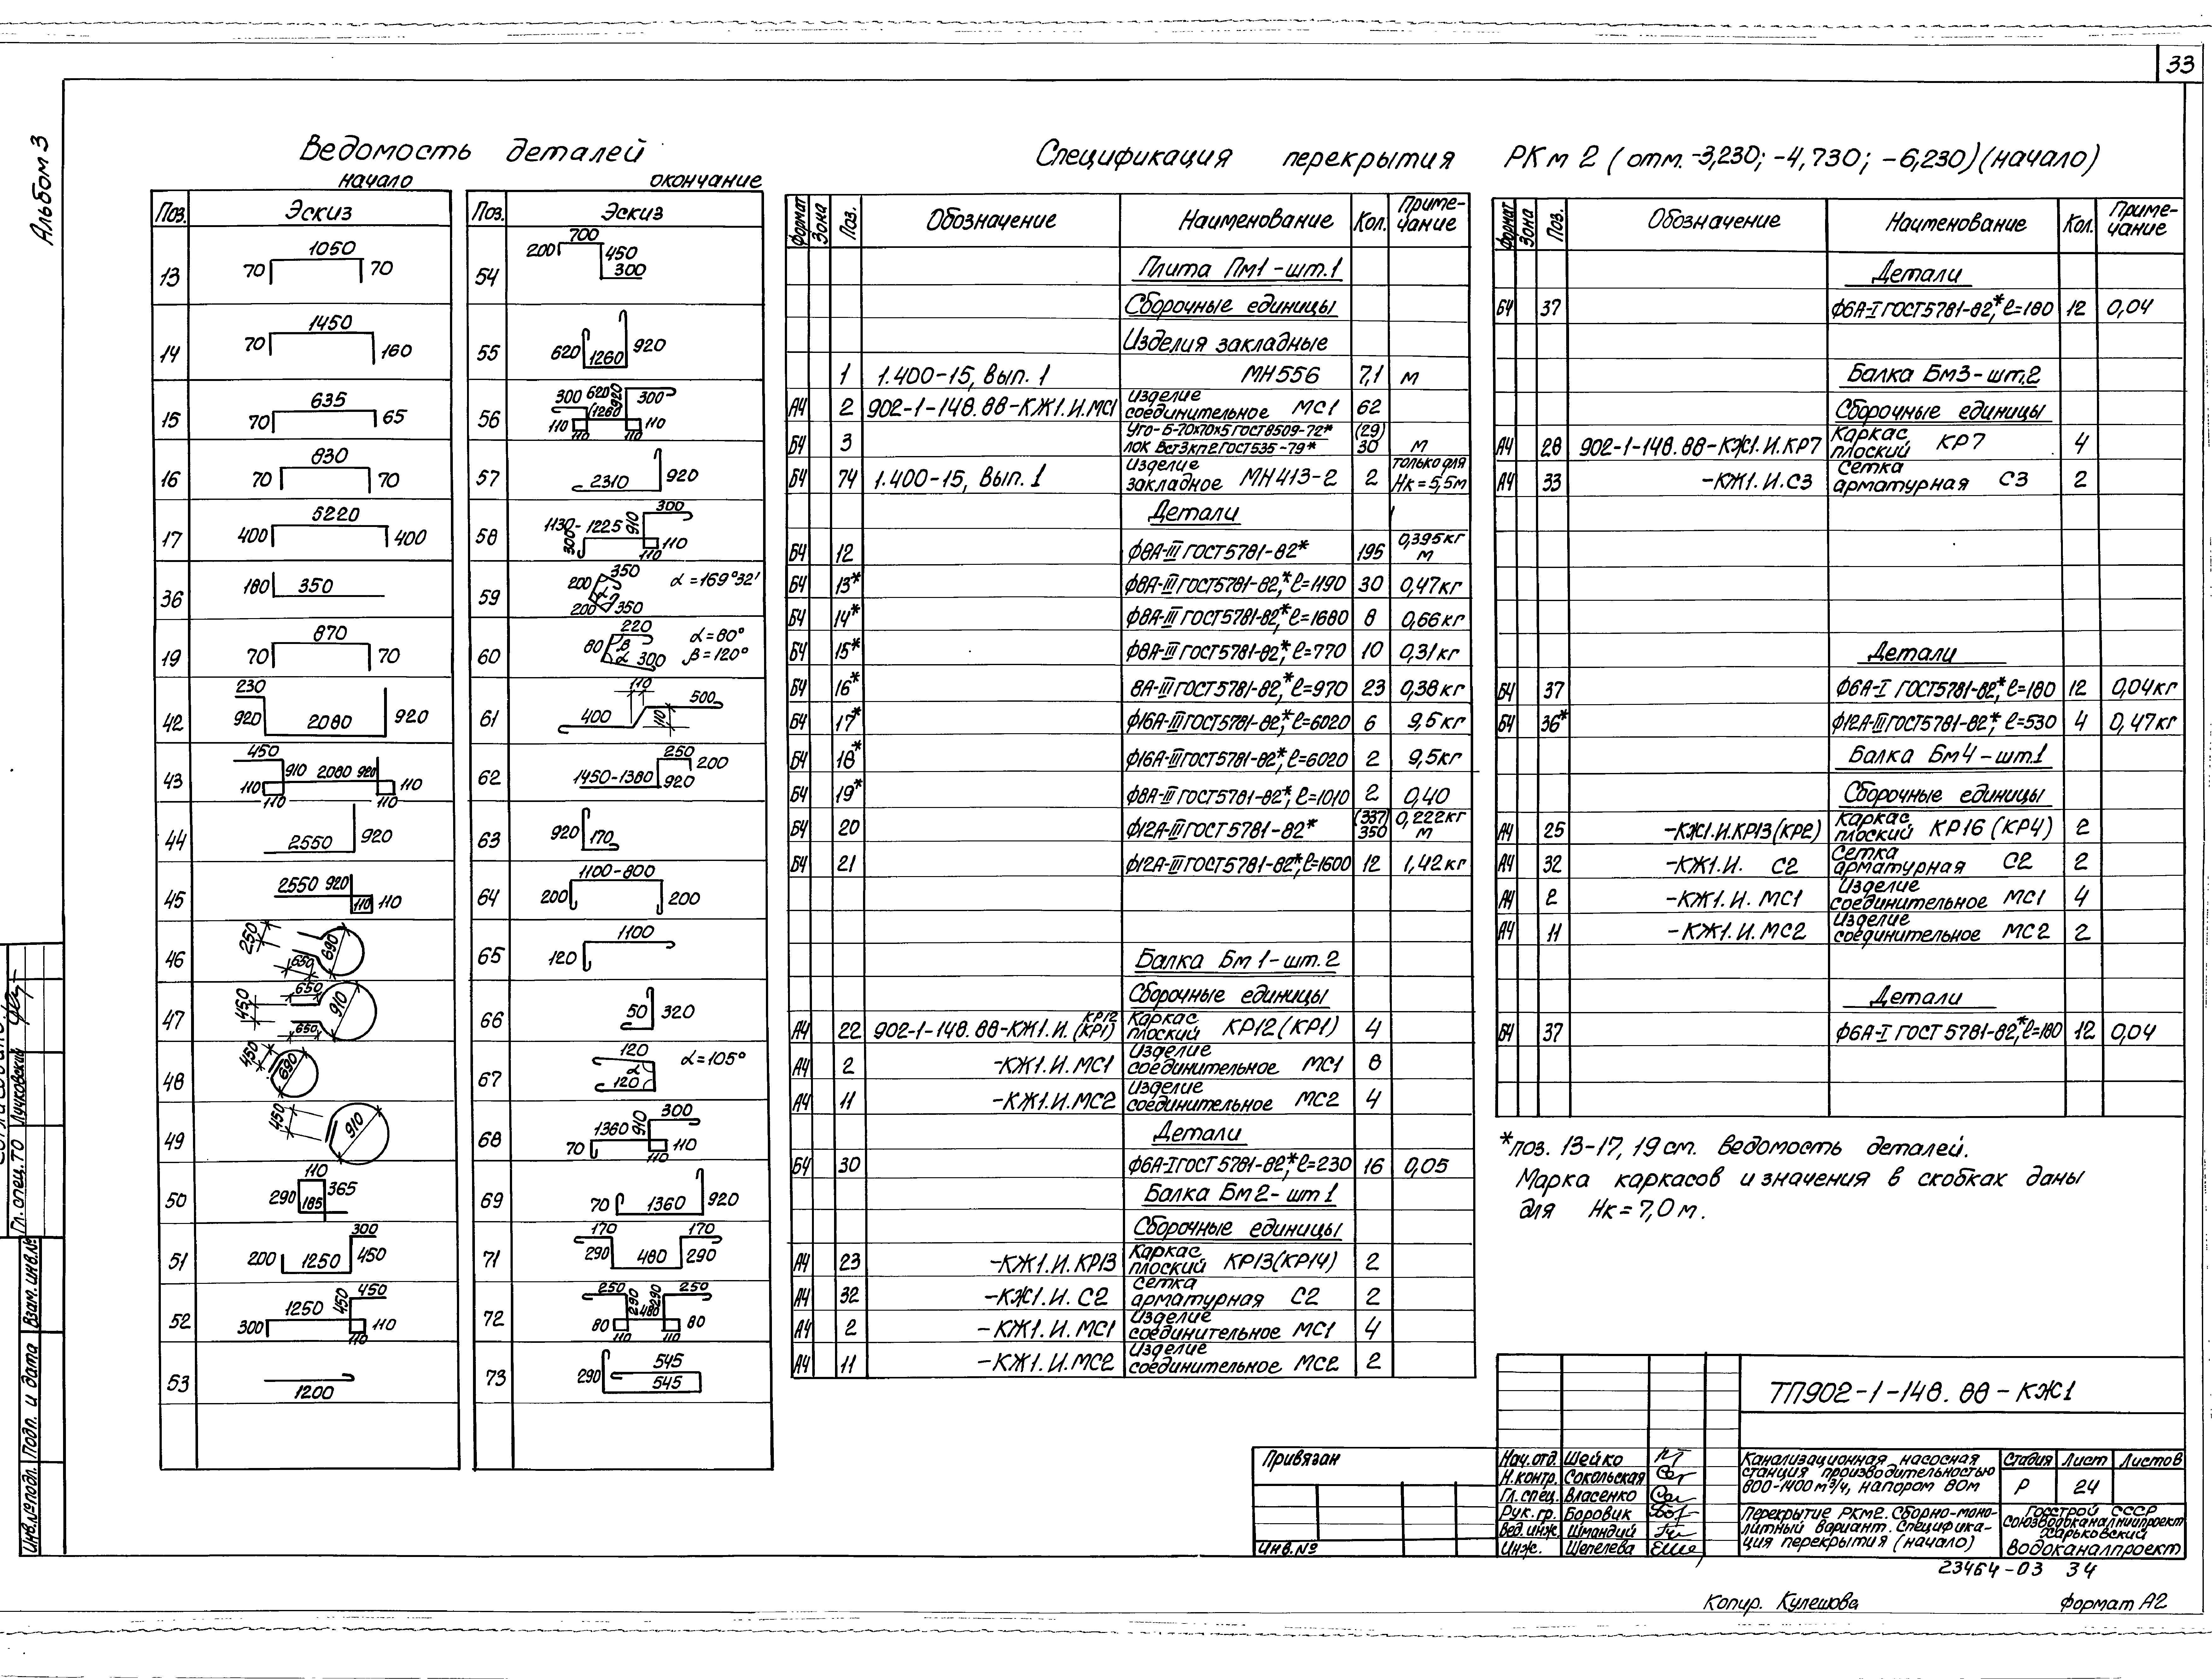 33
Альбом 3
Ведомость деталей
начало
окончание
Поз. Эскиз
13 1050 70 70
14 1450 70 160
15 635 70 65
16 830 70 70
17 5220 400 400
36 180 350
19 870 70 70
42 230 920 2080 920
43 450 910 2080 920 110 110 110 110
44 2550 920
45 2550 920 110 110
46 250 690 650
47 650 450 910 650
48 450 690
49 450 910
50 110 290 365 185
51 300 200 1250 450
52 450 1250 450 300 110 110
53 1200
Поз. Эскиз
54 700 200 450 300
55 620 1260 920
56 300 620 (1260 920 300 110 110 110 110
57 2310 920
58 300 1130-1225 910 300 110 110
59 350 200 α 200 350 α=169°32'
60 220 80 β α 300 α=80° β=120°
61 110 500 400 110
62 250 200 1450-1380 920
63 920 170
64 1100-800 200 200
65 1100 120
66 50 320
67 120 α 120 α=105°
68 300 1360 910 70 110 110
69 70 1360 920
71 170 170 290 480 290
72 250 250 290 290 480 80 80 110 110
73 545 290 545
Спецификация перекрытия РКм 2 (отм. -3,230; -4,730; -6,230)(начало)
Формат Зона Поз. Обозначение Наименование Кол. Приме-чание
Плита Пм1-шт.1
Сборочные единицы
Изделия закладные
1 1.400-15, Вып. 1 МН556 7,1 м
А4 2 902-1-148.88-КЖ1.И.МС1 Изделие соединительное МС1 62
Б4 3 Уго- Б-70х70х5 ГОСТ 8509-72* (29)
лок Вст3кп2 ГОСТ535-79* 30 м
Б4 74 1.400-15, Вып. 1 Изделие закладное МН413-2 2 только для Нк=5,5м
Детали
Б4 12 Ф8А-III ГОСТ5781-82* 195 0,395кг м
Б4 13* Ф8А-III ГОСТ5781-82*, ℓ=1190 30 0,47кг
Б4 14* Ф8А-III ГОСТ5781-82*, ℓ=1680 8 0,66кг
Б4 15* Ф8А-III ГОСТ5781-82*, ℓ=770 10 0,31кг
Б4 16* 8А-III ГОСТ5781-82*, ℓ=970 23 0,38кг
Б4 17* Ф16А-III ГОСТ5781-82*, ℓ=6020 6 9,5кг
Б4 18* Ф16А-III ГОСТ5781-82*, ℓ=6020 2 9,5кг
Б4 19* Ф8А-III ГОСТ5781-82*, ℓ=1010 2 0,40
Б4 20 Ф12А-III ГОСТ5781-82* (337) 350 0,222кг м
Б4 21 Ф12А-III ГОСТ5781-82*, ℓ=1600 12 1,42кг
Балка Бм 1-шт. 2
Сборочные единицы
А4 22 902-1-148.88-КЖ1.И. КР12 (КР1) Каркас плоский КР12 (КР1) 4
А4 2 -КЖ1.И.МС1 Изделие соединительное МС1 8
А4 11 -КЖ1.И.МС2 Изделие соединительное МС2 4
Детали
Б4 30 Ф6А-I ГОСТ 5781-82*, ℓ=230 16 0,05
Балка Бм2- шт 1
Сборочные единицы
А4 23 -КЖ1.И.КР13 Каркас плоский КР13(КР14) 2
А4 32 -КЖ1.И. С2 Сетка арматурная С2 2
А4 2 -КЖ1.И.МС1 Изделие соединительное МС1 4
А4 11 -КЖ1.И.МС2 Изделие соединительное МС2 2
Формат Зона Поз. Обозначение Наименование Кол. Приме-чание
Детали
Б4 37 Ф6А-I ГОСТ5781-82*, ℓ=180 12 0,04
Балка Бм3-шт.2
Сборочные единицы
А4 28 902-1-148.88-КЖ1.И.КР7 Каркас плоский КР7 4
А4 33 -КЖ1.И.С3 Сетка арматурная С3 2
Детали
Б4 37 Ф6А-I ГОСТ5781-82*, ℓ=180 12 0,04кг
Б4 36* Ф12А-III ГОСТ5781-82*, ℓ=530 4 0,47кг
Балка Бм4-шт.1
Сборочные единицы
А4 25 -КЖ1.И.КР13(КР2) Каркас плоский КР16 (КР4) 2
А4 32 -КЖ1.И. С2 Сетка арматурная С2 2
А4 2 -КЖ1.И. МС1 Изделие соединительное МС1 4
А4 11 -КЖ1.И.МС2 Изделие соединительное МС2 2
Детали
Б4 37 Ф6А-I ГОСТ 5781-82*, ℓ=180 12 0,04
*поз. 13-17, 19 см. Ведомость деталей.
Марка каркасов и значения в скобках даны
для Нк=7,0 м.
ТП902-1-148.88-КЖ1
Привязан
Инв.№
Нач.отд. Шейко
Н.контр. Сокольская
Гл.спец. Власенко
Рук.гр. Боровик
Вед.инж. Шмандий
Инж. Шепелева
Канализационная насосная
станция производительностью
800-1400 м³/ч, напором 80м
Стадия Лист Листов
Р 24
Перекрытие РКм2. Сборно-моно-
литный вариант. Специфика-
ция перекрытия (начало)
Госстрой СССР
Союзводоканалниипроект
Харьковский
Водоканалпроект
23464-03 34
Копир. Кулешова Формат А2
Гл. спец. ТО Лучковский
Взам. инв.№
Подп. и дата
Инв.№подл.